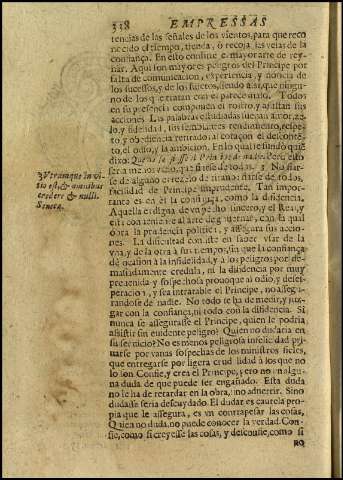 328 EMPRESSAS
tencias de las señales de los vientos, para que reco
nocido el tiempo, tienda, o recoja las velas de la
confiança. En esto consiste el mayor arte de rey-
nar. Aqui son mayores peligros del Principe por
falta de comunicacion, experiencia, y noticia de
los sucessos, y de los sugetos, siendo assi, que ningu-
no de los que tratan con el parece malo. Todos
en su presencia componen el rostro, y ajustan sus
acciones. Las palabras estudiadas suenan amor, ze-
lo, y fidelidad, sus semblantes rendimiento, respe-
to, y obediencia retirados al coraçon el descon-
tento, el odio, y la ambicion. En lo qual se fundò quien
dixo: Que no se fiasse el Principe de nadie. Pero esto
seria menos vicio, que fiarse de todos. 3 No fiar-
se de alguno es rezelo de animo: fiarse de todos,
facilidad de Principe imprudente. Tan impor-
tante es en èl la confiança, como la difidencia.
Aquella es digna de vn pecho sincero, y Real, y
esta conveniente al arte de governar, con la qual
obra la prudencia politica, y assegura sus accio-
nes. La dificultad consiste en saber vsar de la
vna, y de la otra a su tiempo, sin que la confiança
dè ocasion à la infidelidad, y à los peligros por de-
masiadamente credula, ni la difidencia por muy
prevenida, y sospechosa provoque al odio, y deses-
peracion, y sea intratable el Principe, no assegu-
randose de nadie. No todo se ha de medir, y juz-
gar con la confiança, ni todo con la difidencia. Si
nunca se assegurasse el Principe, quien le podria
assistir sin evidente peligro? Quien no dudaria en
su servicio? No es menos peligrosa infelicidad pri-
varse por vanas sospechas de los ministros fieles,
que entregarse por ligera credulidad à los que no
lo son Confie, y crea el Principe, pero no sin algu-
na duda de que puede ser engañado. Esta duda
no le ha de retardar en la obra, sino advertir. Sino
dudasse seria descuydado. El dudar es cautela pro-
pia que le assegura, es vn contrapesar las cosas,
Quien no duda, no puede conocer la verdad. Con-
fie, como si creyesse las cosas, y desconfie, como si
no
3 Vtrumque in vi-
tio est, & omnibus
credere & nulli.
Seneca.